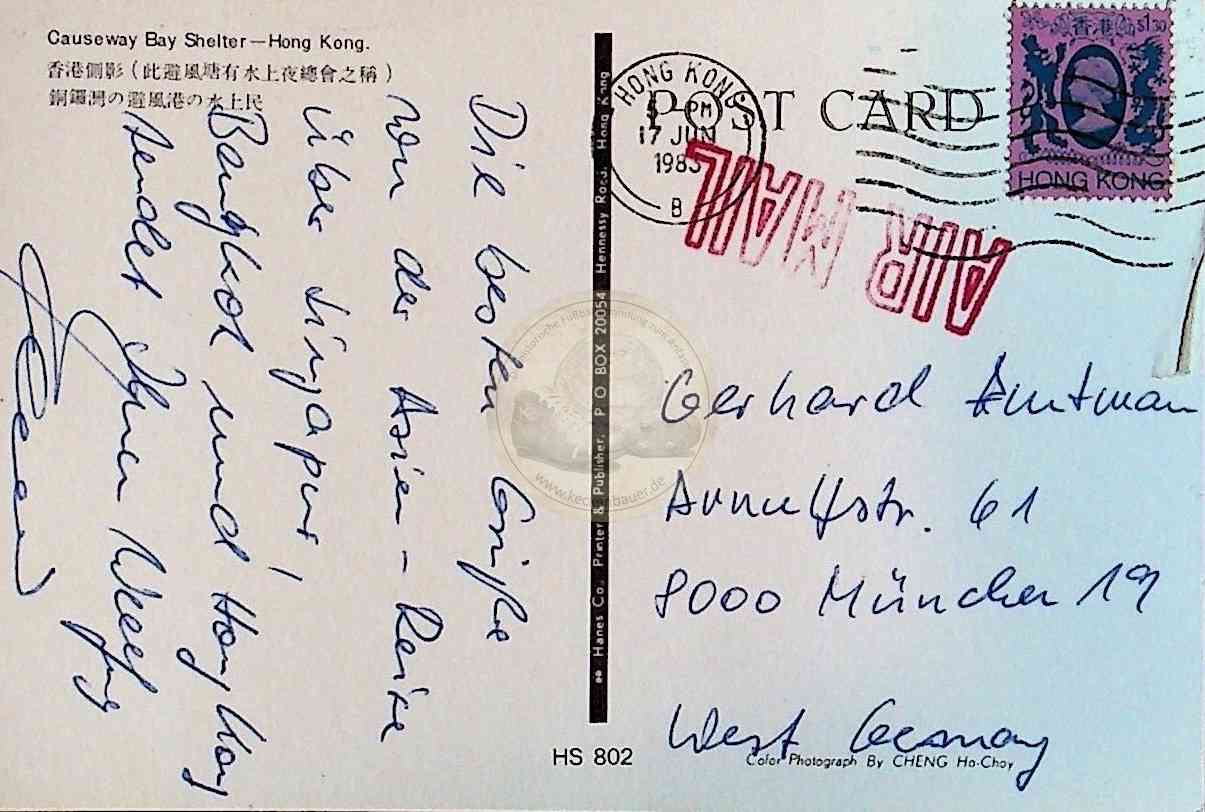 Causeway Bay Shelter—Hong Kong.
香港側影（此避風塘有水上夜總會之稱）
銅鑼灣の避風港の水上民
Die besten Grüße
von der Asien-Reise
über Singapur,
Bangkok und Hong Kong
sendet Ihnen
POST CARD
HONG KONG
1 - PM
17 JUN
1983
B
香港 $1.30
HONG KONG
AIR MAIL
Gerhard Amtman
Arnulfstr. 61
8000 München 19
West Germany
Hanes Co., Printer & Publisher, P O BOX 20054 Hennessy Road, Hong Kong
www.keckenbauer.de
HS 802
Color Photograph By CHENG Ho-Choy